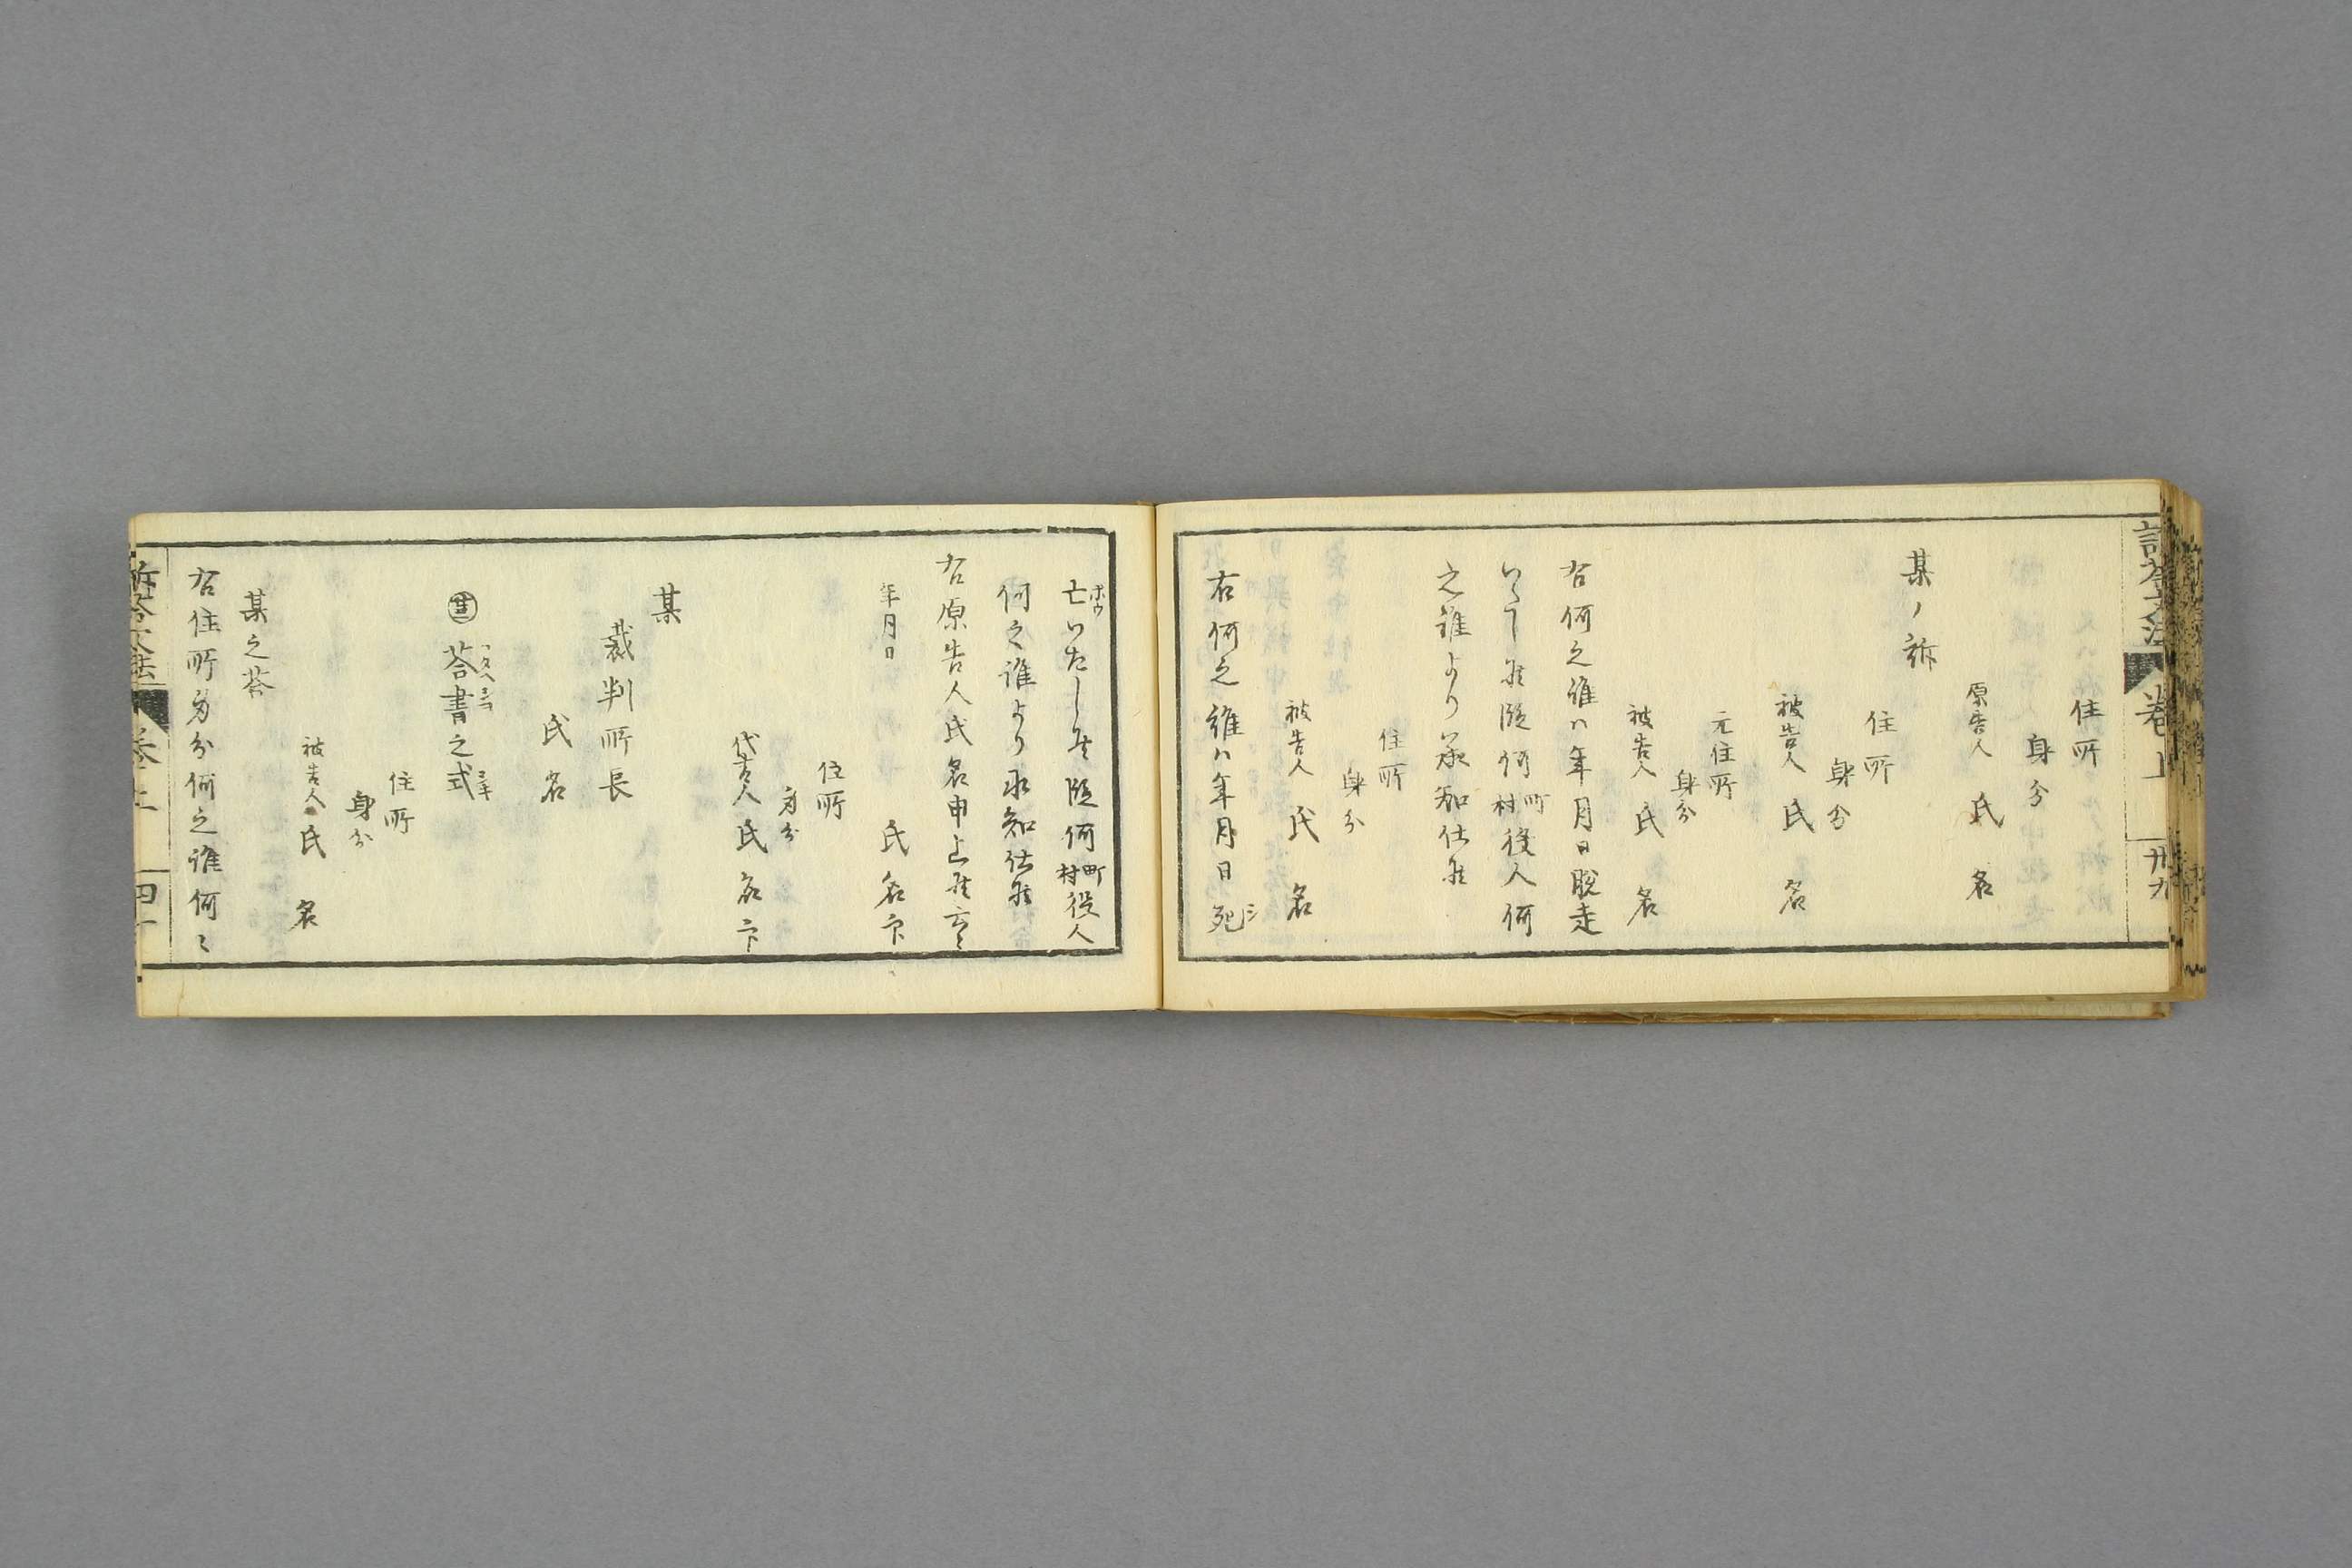 訴答文法
卷上
卅九
住所
身分
原告人 氏 名
某ノ訴
住所
身分
被告人 氏 名
元住所
身分
被告人 氏 名
右何之誰ハ年月日脱走
いたし候段何町村役人何
之誰より承知仕候
住所
身分
被告人 氏 名
右何之誰ハ年月日死シ
亡ボウいたし候段何町村役人
何之誰より承知仕候
右原告人氏名申上候云々
年月日 氏 名 印
住所
身分
代言人 氏 名 印
某
裁判所長
氏 名
答書之式
住所
身分
被告人 氏 名
某之答
右住所身分何之誰何々
訴答文法
卷上
四十